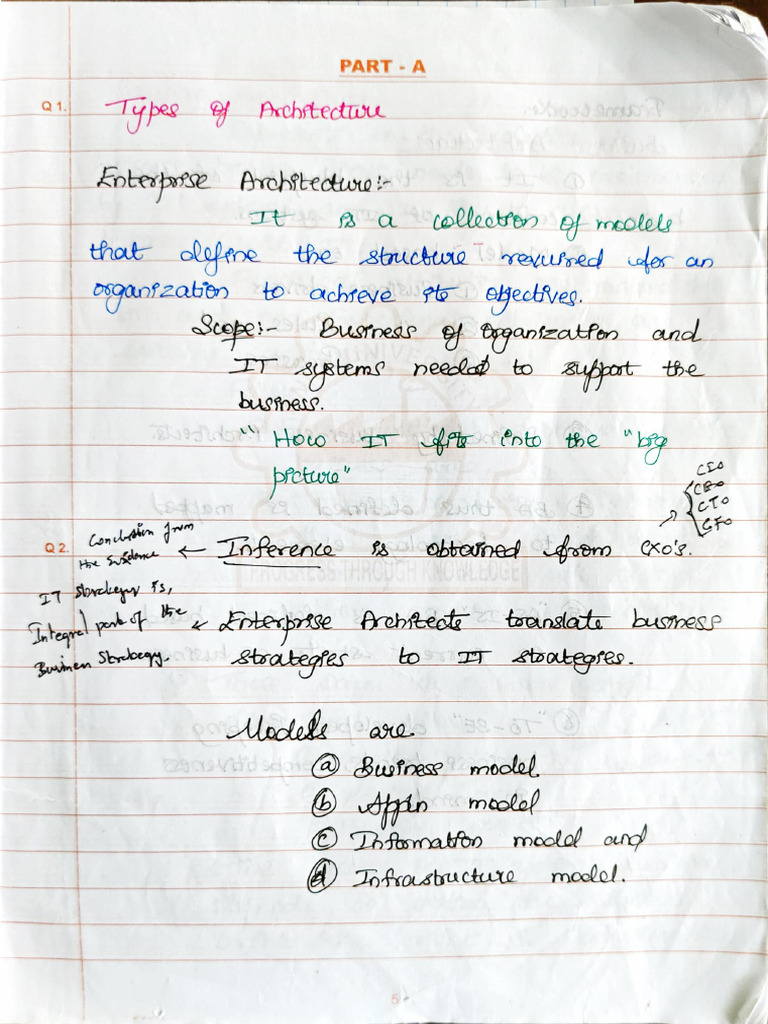 PART - A
Q 1. Types of Architecture
Enterprise Architecture:-
It is a collection of models
that define the structure required for an
organization to achieve its objectives.
Scope:- Business of organization and
IT systems needed to support the
business.
"How IT fits into the "big
picture"
CEO
CTO
CFO
Q 2. Conclusion from
the Evidence ← Inference is obtained from CXO's.
IT strategy is,
Integral part of the
Business Strategy.
Enterprise Architects translate business
strategies to IT strategies.
Models are
(a) Business model
(b) Appln model
(c) Information model and
(d) Infrastructure model.
PROGRESS THROUGH KNOWLEDGE
5